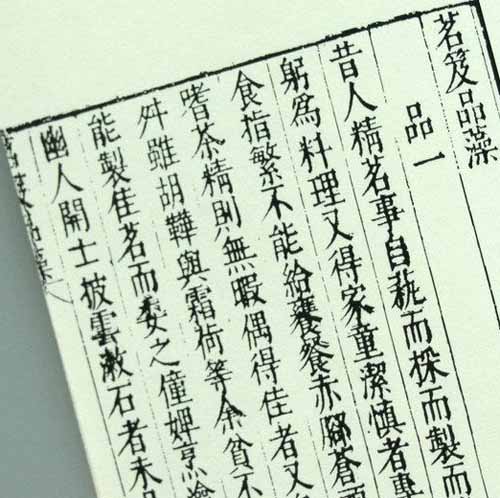 茗笈品藻
品一
昔人精茗事自蓺而採而製而
躬爲料理又得家童潔慎者專
食指繁不能給饔餐赤腳蒼
嗜茶精則無暇偶得佳者又
舛雖胡韡與霜荷等余貧不
能製佳茗而委之僮婢烹瀹
幽人開士披雲漱石者未